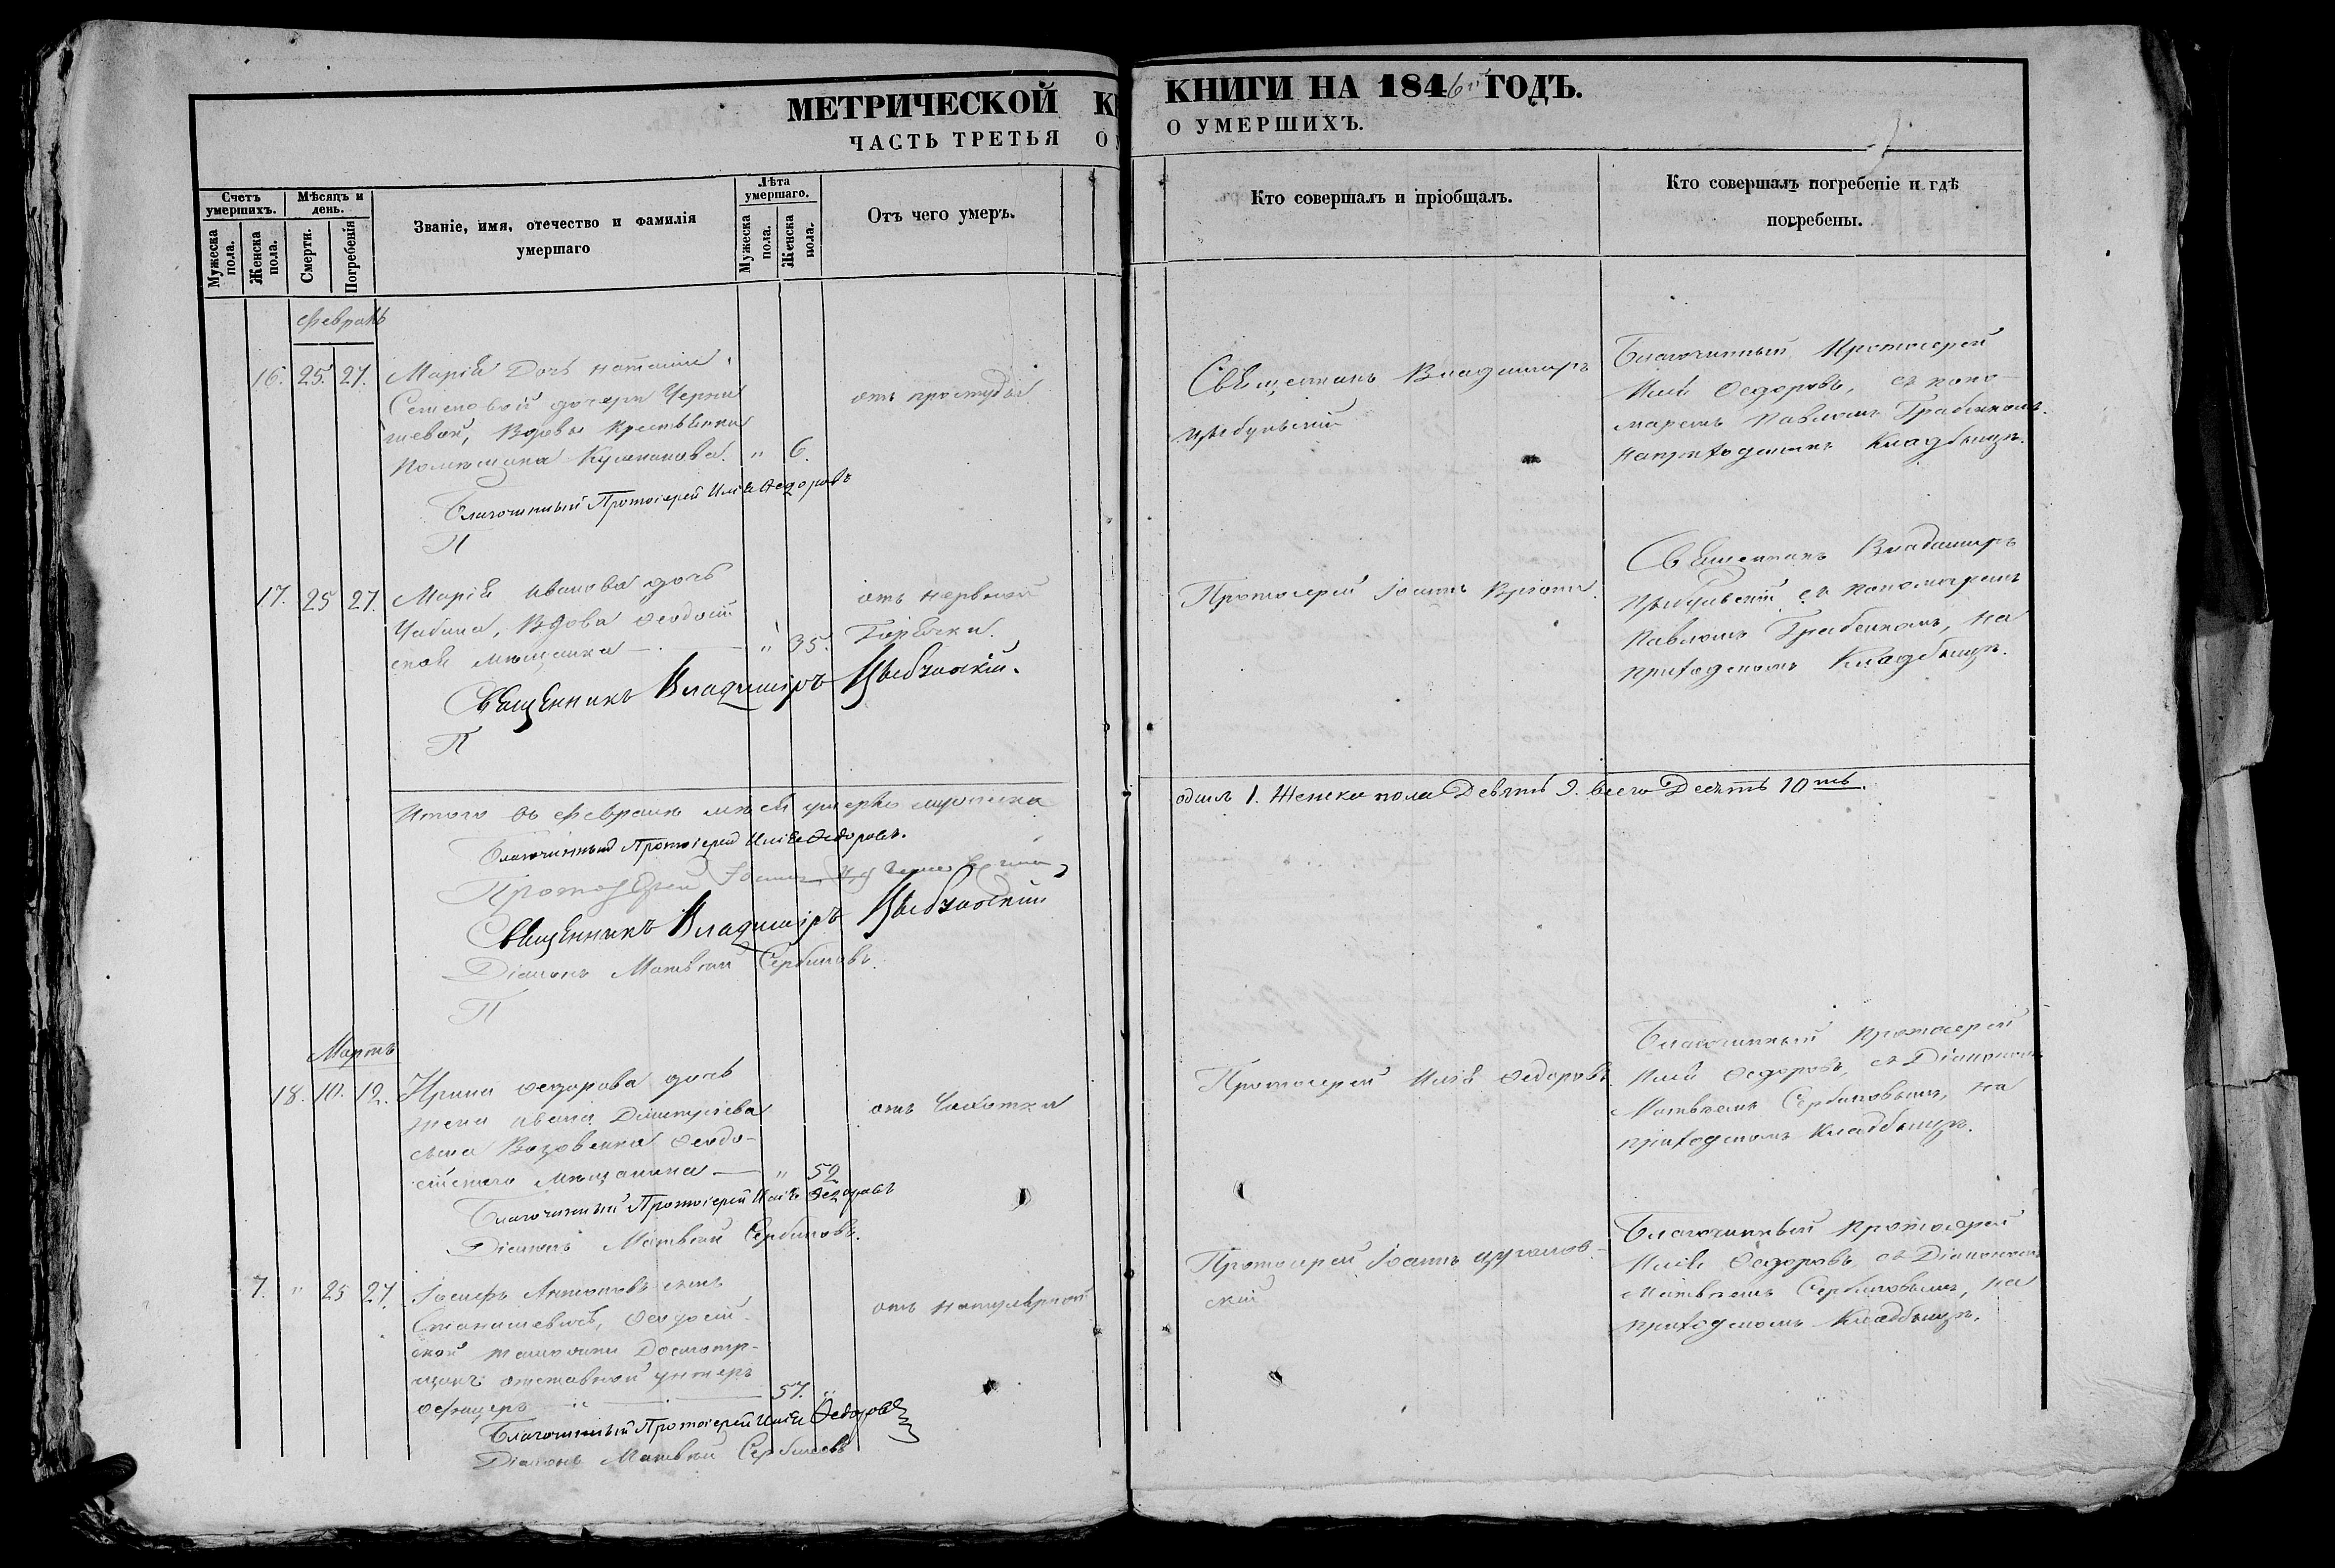 МЕТРИЧЕСКОЙ
ЧАСТЬ ТРЕТЬЯ
Счетъ умершихъ.
Мѣсяцъ и день.
Званіе, имя, отечество и фамилія умершаго
Лѣта умершаго.
Отъ чего умеръ.
Мужеска пола.
Женска пола.
Смерти.
Погребенія
Мужеска пола.
Женска пола.
Февраль
16. 25. 27. Марія Дочь
дочери Черни
шевой, Вдовы
" 6.
отъ простуды
Благочинный Протоіерей Илія Федоровъ
П
17. 25 27. Марія Иванова дочь
Чабана, Вдова Феодосій
ская мѣщанка " 35.
отъ нервной
Горячки.
Священникъ Владиміръ Цыбульскій.
П
Итого въ Февралѣ умерло мужеска
Благочинный Протоіерей Илія Федоровъ.
Протоіерей Іоаннъ
Священникъ Владиміръ Цыбульскій
Діаконъ Матвѣй Сербиновъ.
П
Мартъ
18. 10. 12. Ирина Федорова дочь
жена Ивана Димитріева
сына Феодо-
сійскаго мѣщанина " 52
отъ Чахотки
Благочинный Протоіерей Илія Федоровъ
Діаконъ Матвѣй Сербиновъ.
7. " 25 27. Іосифъ Антоновъ сынъ
Станишевичъ, Феодосій-
ской таможни Досмотр-
щикъ отставной унтеръ
офицеръ 57. "
отъ
Благочинный Протоіерей Илія Федоровъ
Діаконъ Матвѣй Сербиновъ
КНИГИ НА 1846 ГОДЪ.
О УМЕРШИХЪ.
Кто совершалъ и пріобщалъ.
Кто совершалъ погребеніе и гдѣ
погребены.
Священникъ Владиміръ
Цыбульскій
Благочинный Протоіерей
Илія Федоровъ, съ поно-
маремъ Павломъ Грабенкомъ
на приходскомъ Кладбищѣ.
Протоіерей Іоаннъ
Священникъ Владиміръ
Цыбульскій съ пономаремъ
Павломъ Грабенкомъ, на
приходскомъ Кладбищѣ.
одинъ 1. Женска пола Девять 9. всего Десять 10ть.
Протоіерей Илія Федоровъ.
Благочинный протоіерей
Илія Федоровъ, съ Діакономъ
Матвѣемъ Сербиновымъ, на
приходскомъ Кладбищѣ.
Протоіерей Іоаннъ
скій
Благочинный протоіерей
Илія Федоровъ съ Діакономъ
Матвѣемъ Сербиновымъ, на
приходскомъ Кладбищѣ.